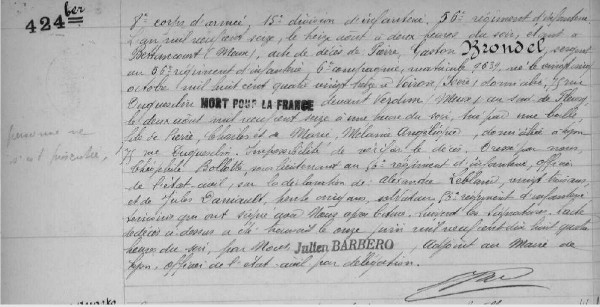 424 ber
8e corps d'armée, 15e division d'infanterie. 56e régiment d'infanterie
L'an mil neuf cent seize, le treize août à deux heures du soir, étant à
Bettancourt (Meuse), acte de décès de Pierre, Gaston BRONDEL, sergent
au 56e régiment d'infanterie, 6e compagnie, matricule 9839, né le vingt cinq
octobre mil huit cent quatre vingt treize à Voiron, Isère, domicilié, rue
Duguesclin MORT POUR LA FRANCE devant Verdun (Meuse) au sud de Fleury
le deux août mil neuf cent seize à une heure du soir, tué par une balle,
fils de Pierre, Charles et de Marie, Mélanie Angélique, domiciliés à Lyon
rue Duguesclin. Impossibilité de vérifier le décès. Dressé par nous
Théophile sous lieutenant au 56e régiment d'infanterie, officier
de l'état civil, sur la déclaration de Alexandre Leblanc, vingt trois ans,
et de Jules trente cinq ans, soldats au 56e régiment d'infanterie
témoins qui ont signé avec Nous après lecture. Suivent les signatures. L'acte
de décès ci-dessus a été transcrit le onze juin mil neuf cent dix huit quatre
heures du soir, par Nous Julien BARBERO, adjoint au Maire de
Lyon, officier de l'état-civil par délégation.
personne ne
s'est présenté